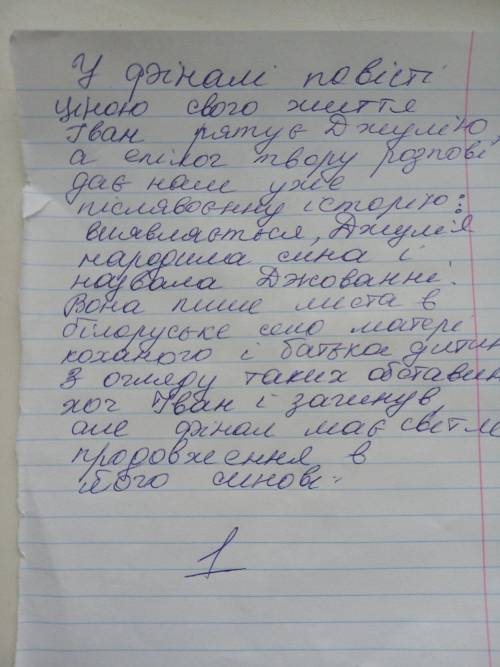 У фіналі повісті
ціною свого життя
Іван рятує Джулію
а епілог твору розпові
дає нам уже
післявоєнну історію:
виявляється, Джулія
народила сина і
назвала Джованні.
Вона пише листа в
білоруське село матері
коханого і батька дитин
З огляду таких обставин
хоч Іван і загинув,
але фінал має світле
продовження в
його синові.
1